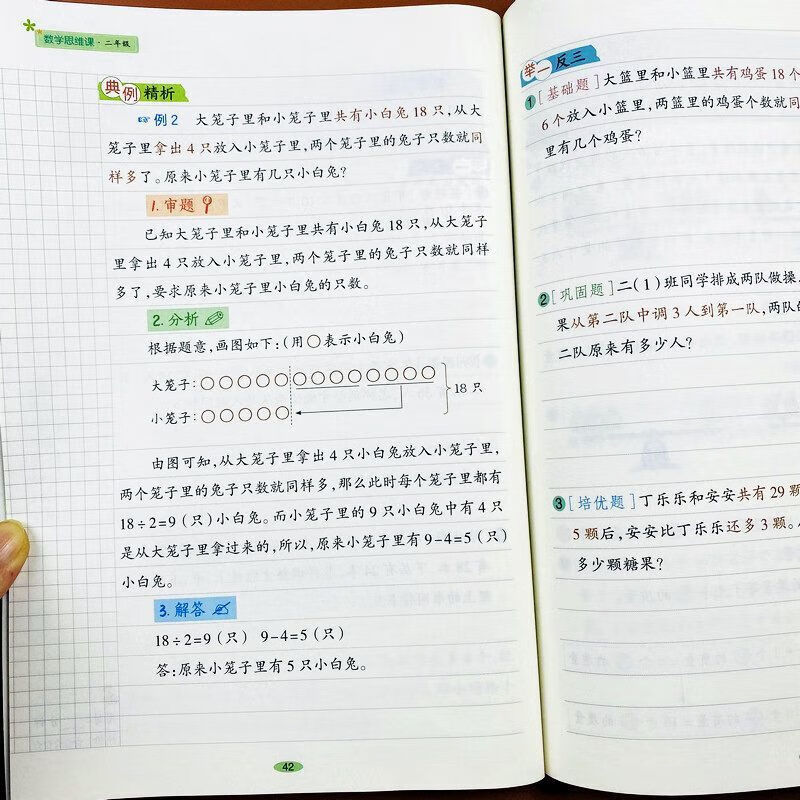 数学思维课·二年级
典例精析
例2 大笼子里和小笼子里共有小白兔18只,从大
笼子里拿出4只放入小笼子里,两个笼子里的兔子只数就同
样多了。原来小笼子里有几只小白兔?
1.审题
已知大笼子里和小笼子里共有小白兔18只,从大笼子
里拿出4只放入小笼子里,两个笼子里的兔子只数就同样
多了,要求原来小笼子里小白兔的只数。
2.分析
根据题意,画图如下:(用○表示小白兔)
大笼子:○○○○○○○○○○○○○
18只
小笼子:○○○○○
由图可知,从大笼子里拿出4只小白兔放入小笼子里,
两个笼子里的兔子只数就同样多,那么此时每个笼子里都有
18÷2=9(只)小白兔。而小笼子里的9只小白兔中有4只
是从大笼子里拿过来的,所以,原来小笼子里有9-4=5(只)
小白兔。
3.解答
18÷2=9(只) 9-4=5(只)
答:原来小笼子里有5只小白兔。
42
举一反三
1[基础题]大篮里和小篮里共有鸡蛋18个
6个放入小篮里,两篮里的鸡蛋个数就同
里有几个鸡蛋?
2[巩固题]二(1)班同学排成两队做操
果从第二队中调3人到第一队,两队的
二队原来有多少人?
3[培优题]丁乐乐和安安共有29颗
5颗后,安安比丁乐乐还多3颗。
多少颗糖果?